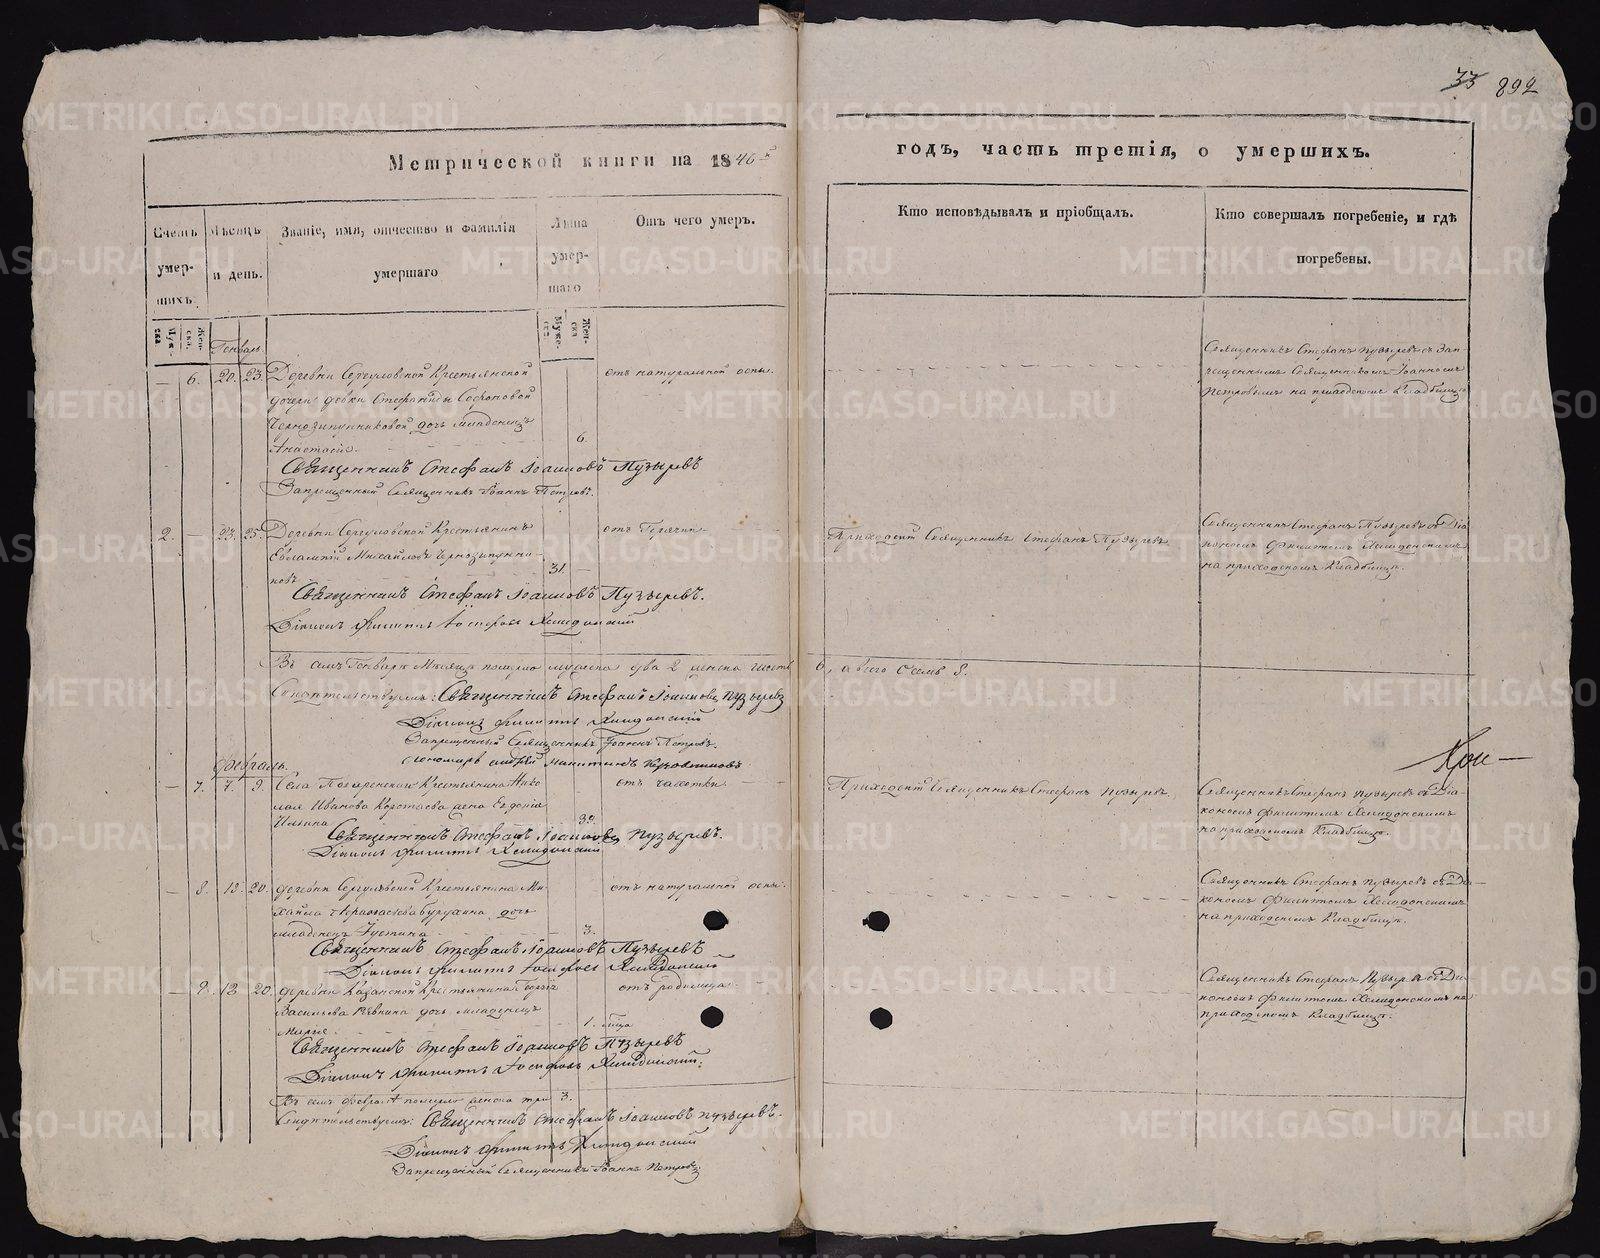 33 892
Метрической книги на 1846й
годъ, часть третія, о умершихъ.
Счетъ умер-шихъ.
Мѣсяцъ и день.
Званіе, имя, отчество и фамилія умершаго
Лѣта умер-шаго
Отъ чего умеръ.
Кто исповѣдывалъ и пріобщалъ.
Кто совершалъ погребеніе, и гдѣ погребены.
Муже-ска
Жен-ска.
Муже-ска
Жен-ска
Генварь.
— 6. 20. 23. Деревни Сергуловской Крестьянской
дочери девки Стефаниды Софроновой
Чернозипунниковой дочь младенецъ
Анастасія. 6.
отъ натуральной оспы.
Священникъ Стефанъ Пузыревъ съ Зап-
рещеннымъ Священникомъ Іоанномъ
Петровымъ на приходскомъ Кладбищѣ
Священникъ Стефанъ Іоанновъ Пузыревъ
Запрещенный Священникъ Іоаннъ Петровъ.
2. — 23. 25. Деревни Сергуловской Крестьянинъ
Евлампій Михайловъ Чернозипунни-
ковъ 31. —
отъ Горячки
Приходскій Священникъ Стефанъ Пузыревъ
Священникъ Стефанъ Пузыревъ съ Діа-
кономъ Филиппомъ Хелидонскимъ
на приходскомъ Кладбищѣ.
Священникъ Стефанъ Іоанновъ Пузыревъ.
Діаконъ Филиппъ Іосифовъ Хелидонскій
Въ семъ Генварѣ Мѣсяцѣ померло мужеска два 2 женска шесть 6, а всего Осемь 8.
Свидѣтельствуемъ: Священникъ Стефанъ Іоанновъ Пузыревъ
Діаконъ Филиппъ Хелидонскій
Запрещенный Священникъ Іоаннъ Петровъ.
Пономарь Андрей Никитинъ
Февраль.
— 7. 7. 9. Села Крестьянина Нико-
лая Иванова Коротаева жена Евдокія
Ильина 39.
отъ чахотки
Приходскій Священникъ Стефанъ Пузыревъ.
Священникъ Стефанъ Пузыревъ съ Діа-
кономъ Филиппомъ Хелидонскимъ
на приходскомъ Кладбищѣ.
Священникъ Стефанъ Іоанновъ Пузыревъ.
Діаконъ Филиппъ Хелидонскій
— 8. 18. 20. деревни Сергуловской Крестьянина Ми-
хаила дочь
младенец Іустина 3.
отъ натуральной оспы.
Священникъ Стефанъ Пузыревъ съ Діа-
кономъ Филиппомъ Хелидонскимъ
на приходскомъ Кладбищѣ.
Священникъ Стефанъ Іоанновъ Пузыревъ
Діаконъ Филиппъ Іосифовъ Хелидонскій
— 9. 18. 20. деревни Казанской Крестьянина
Васильева дочь младенецъ
Марія. 1. м-ца
отъ родимца
Священникъ Стефанъ Пузыревъ съ Діа-
кономъ Филиппомъ Хелидонскимъ на
приходскомъ Кладбищѣ.
Священникъ Стефанъ Іоанновъ Пузыревъ
Діаконъ Филиппъ Іосифовъ Хелидонскій.
Въ семъ Февралѣ померло женска три 3.
Свидѣтельствуемъ: Священникъ Стефанъ Іоанновъ Пузыревъ.
Діаконъ Филиппъ Хелидонскій
Запрещенный Священникъ Іоаннъ Петровъ
METRIKI.GASO-URAL.RU